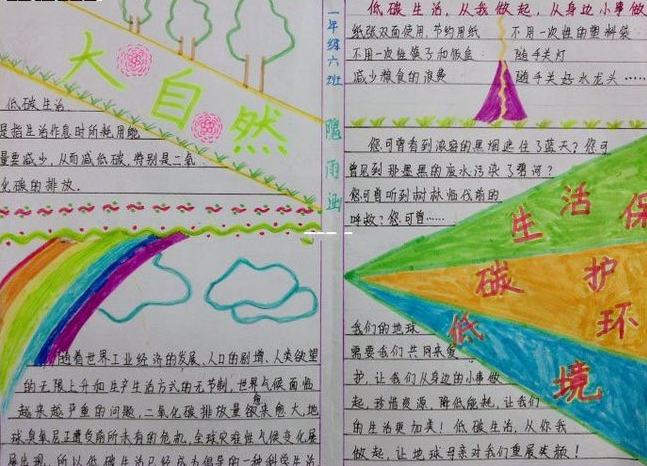 大自然
低碳生活
是指生活作息时所耗用能
量要减少，从而减低碳，特别是二氧
化碳的排放．
随着世界工业经济的发展、人口的剧增、人类欲望
的无限上升和生产生活方式的无节制，世界气候面临
越来越严重的问题，二氧化碳排放量愈来愈大，地
球臭氧层正遭受前所未有的危机，全球灾难性气候变化屡
屡出现，所以低碳生活已经成为倡导的一种科学生活
一年级六班
雨涵
低碳生活，从我做起，从身边小事做
纸张双面使用，节约用纸
不用一次性的塑料袋
不用一次性筷子和饭盒
随手关灯
减少粮食的浪费
随手关好水龙头……
您可曾看到浓密的黑烟遮住了蓝天？您可
曾见到那墨黑的废水污染了碧河？
您可曾听到树林临伐前的
呼救？您可曾……
生活保
碳护
低环
境
我们的地球
需要我们共同来爱
护，让我们从身边的小事做
起，珍惜资源，降低能耗，让我们
的生活更加美！低碳生活，从你我
做起，让地球母亲对我们重展笑颜！